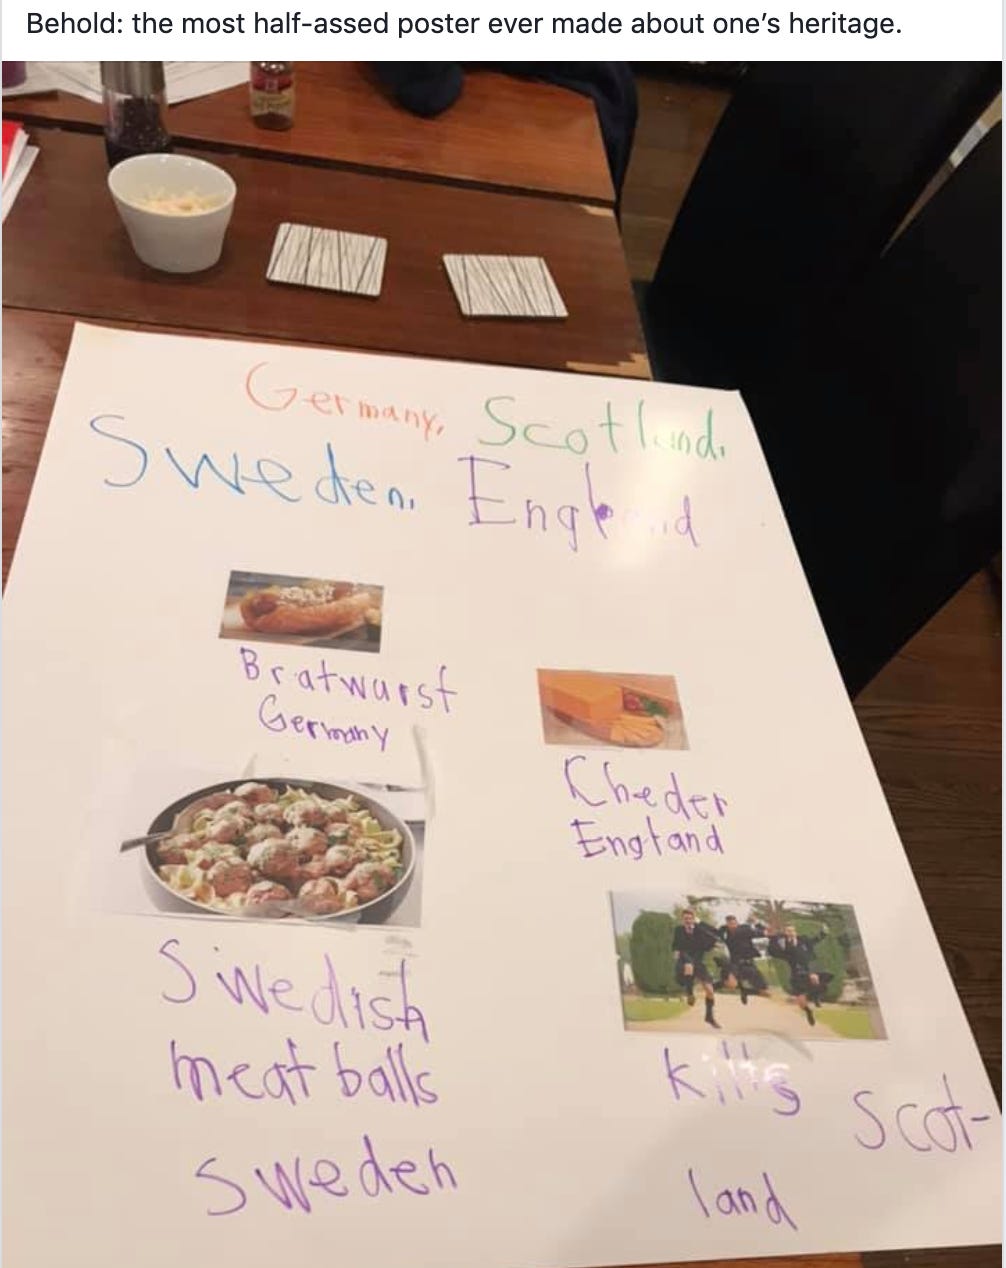 Behold: the most half-assed poster ever made about one's heritage.
Germany, Scotland,
Sweden, England
Bratwurst
Germany
Cheder
England
Swedish
meat balls
Sweden
Kilts
Scot-
land